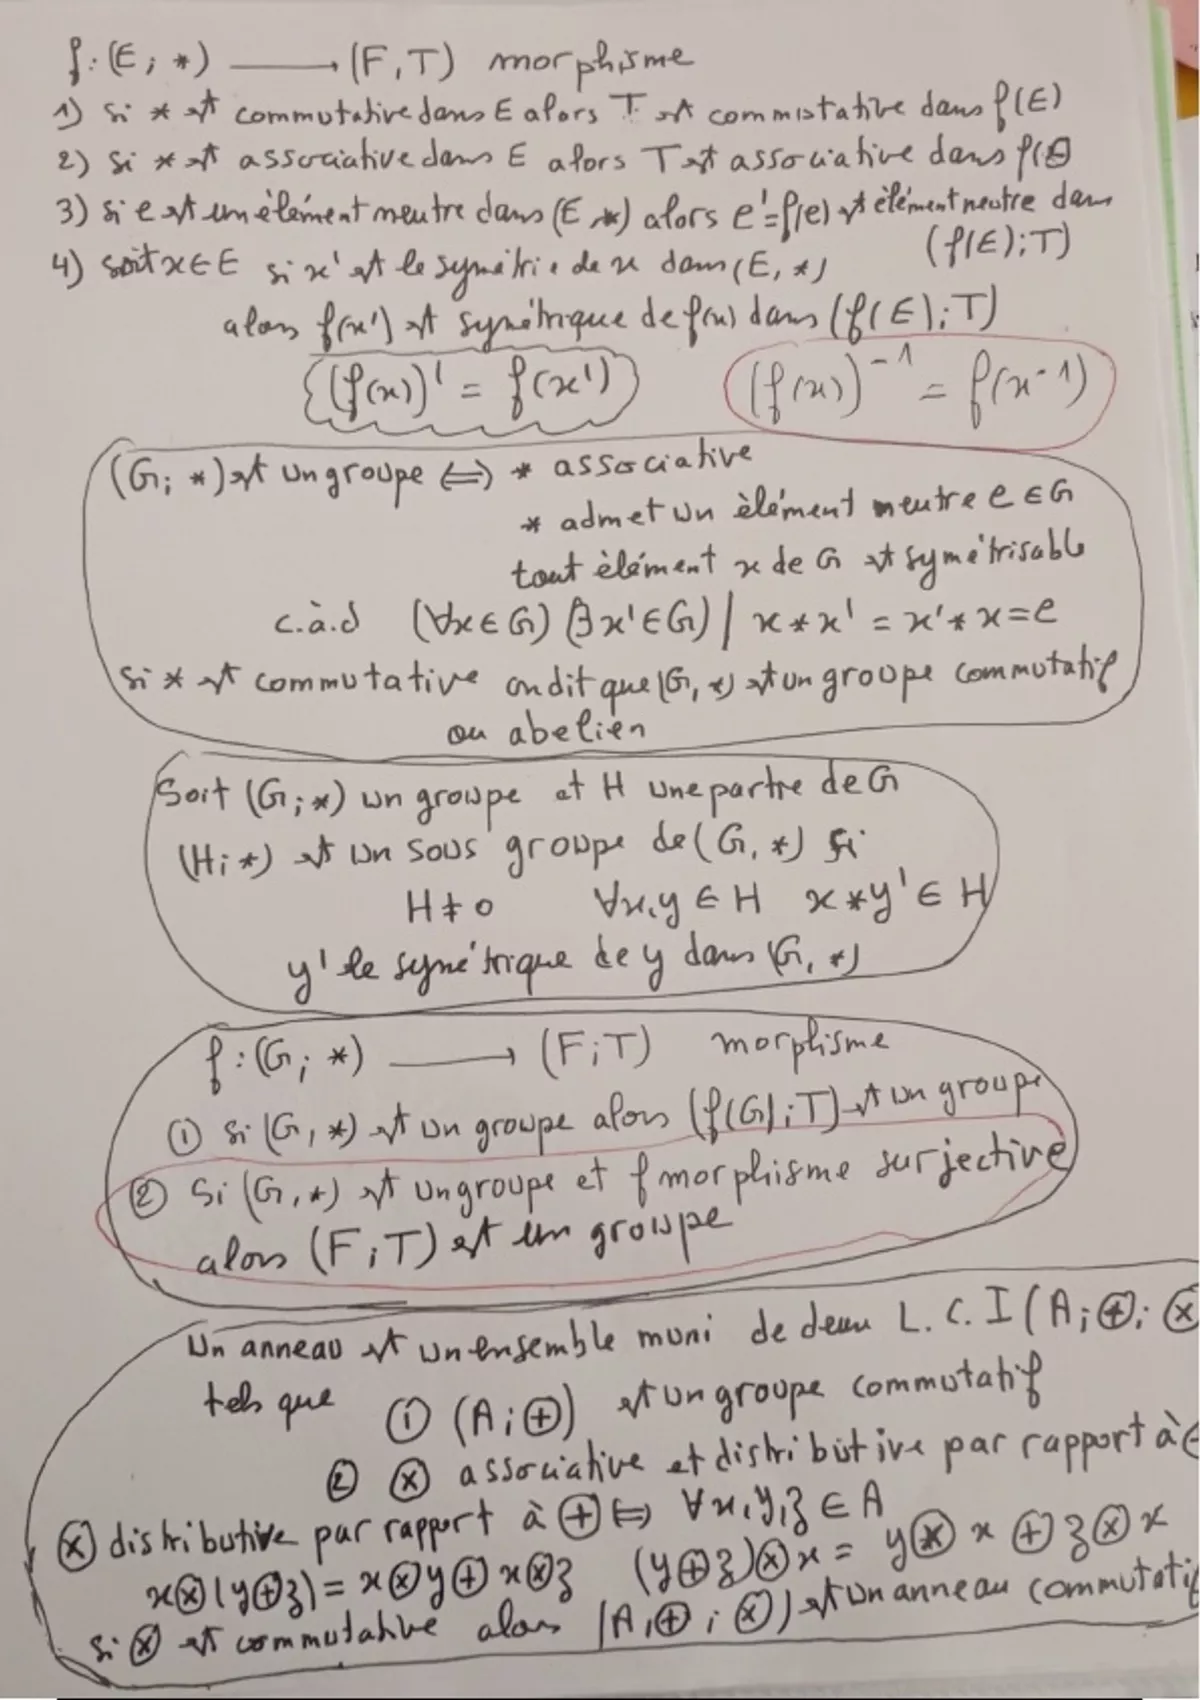 f : (E ; *) ⟶ (F, T) morphisme
1) si * est commutative dans E alors T est commutative dans f(E)
2) si * est associative dans E alors T est associative dans f(E)
3) si e est un élément neutre dans (E, *) alors e' = f(e) est élément neutre dans
(f(E) ; T)
4) soit x ∈ E si x' est le symétrie de x dans (E, *)
alors f(x') est symétrique de f(x) dans (f(E) ; T)
(f(x))' = f(x') (f(x))⁻¹ = f(x⁻¹)
(G ; *) est un groupe ⟺ * associative
* admet un élément neutre e ∈ G
tout élément x de G est symétrisable
c.à.d (∀x ∈ G) (∃x' ∈ G) / x * x' = x' * x = e
si * est commutative on dit que (G, *) est un groupe commutatif
ou abelien
Soit (G ; *) un groupe et H une partie de G
(H ; *) est un sous groupe de (G, *) si
H ≠ 0 ∀x, y ∈ H x * y' ∈ H
y' le symétrique de y dans (G, *)
f : (G ; *) ⟶ (F ; T) morphisme
① si (G, *) est un groupe alors (f(G) ; T) est un groupe
② Si (G, *) est un groupe et f morphisme surjective
alors (F ; T) est un groupe
Un anneau est un ensemble muni de deux L. C. I (A ; ⊕ ; ⊗
tels que ① (A ; ⊕) est un groupe commutatif
② ⊗ associative et distributive par rapport à ⊕
⊗ distributive par rapport à ⊕ ⟺ ∀x, y, z ∈ A
x⊗(y⊕z) = x⊗y ⊕ x⊗z (y⊕z)⊗x = y⊗x ⊕ z⊗x
si ⊗ est commutative alors (A, ⊕ ; ⊗) est un anneau commutatif